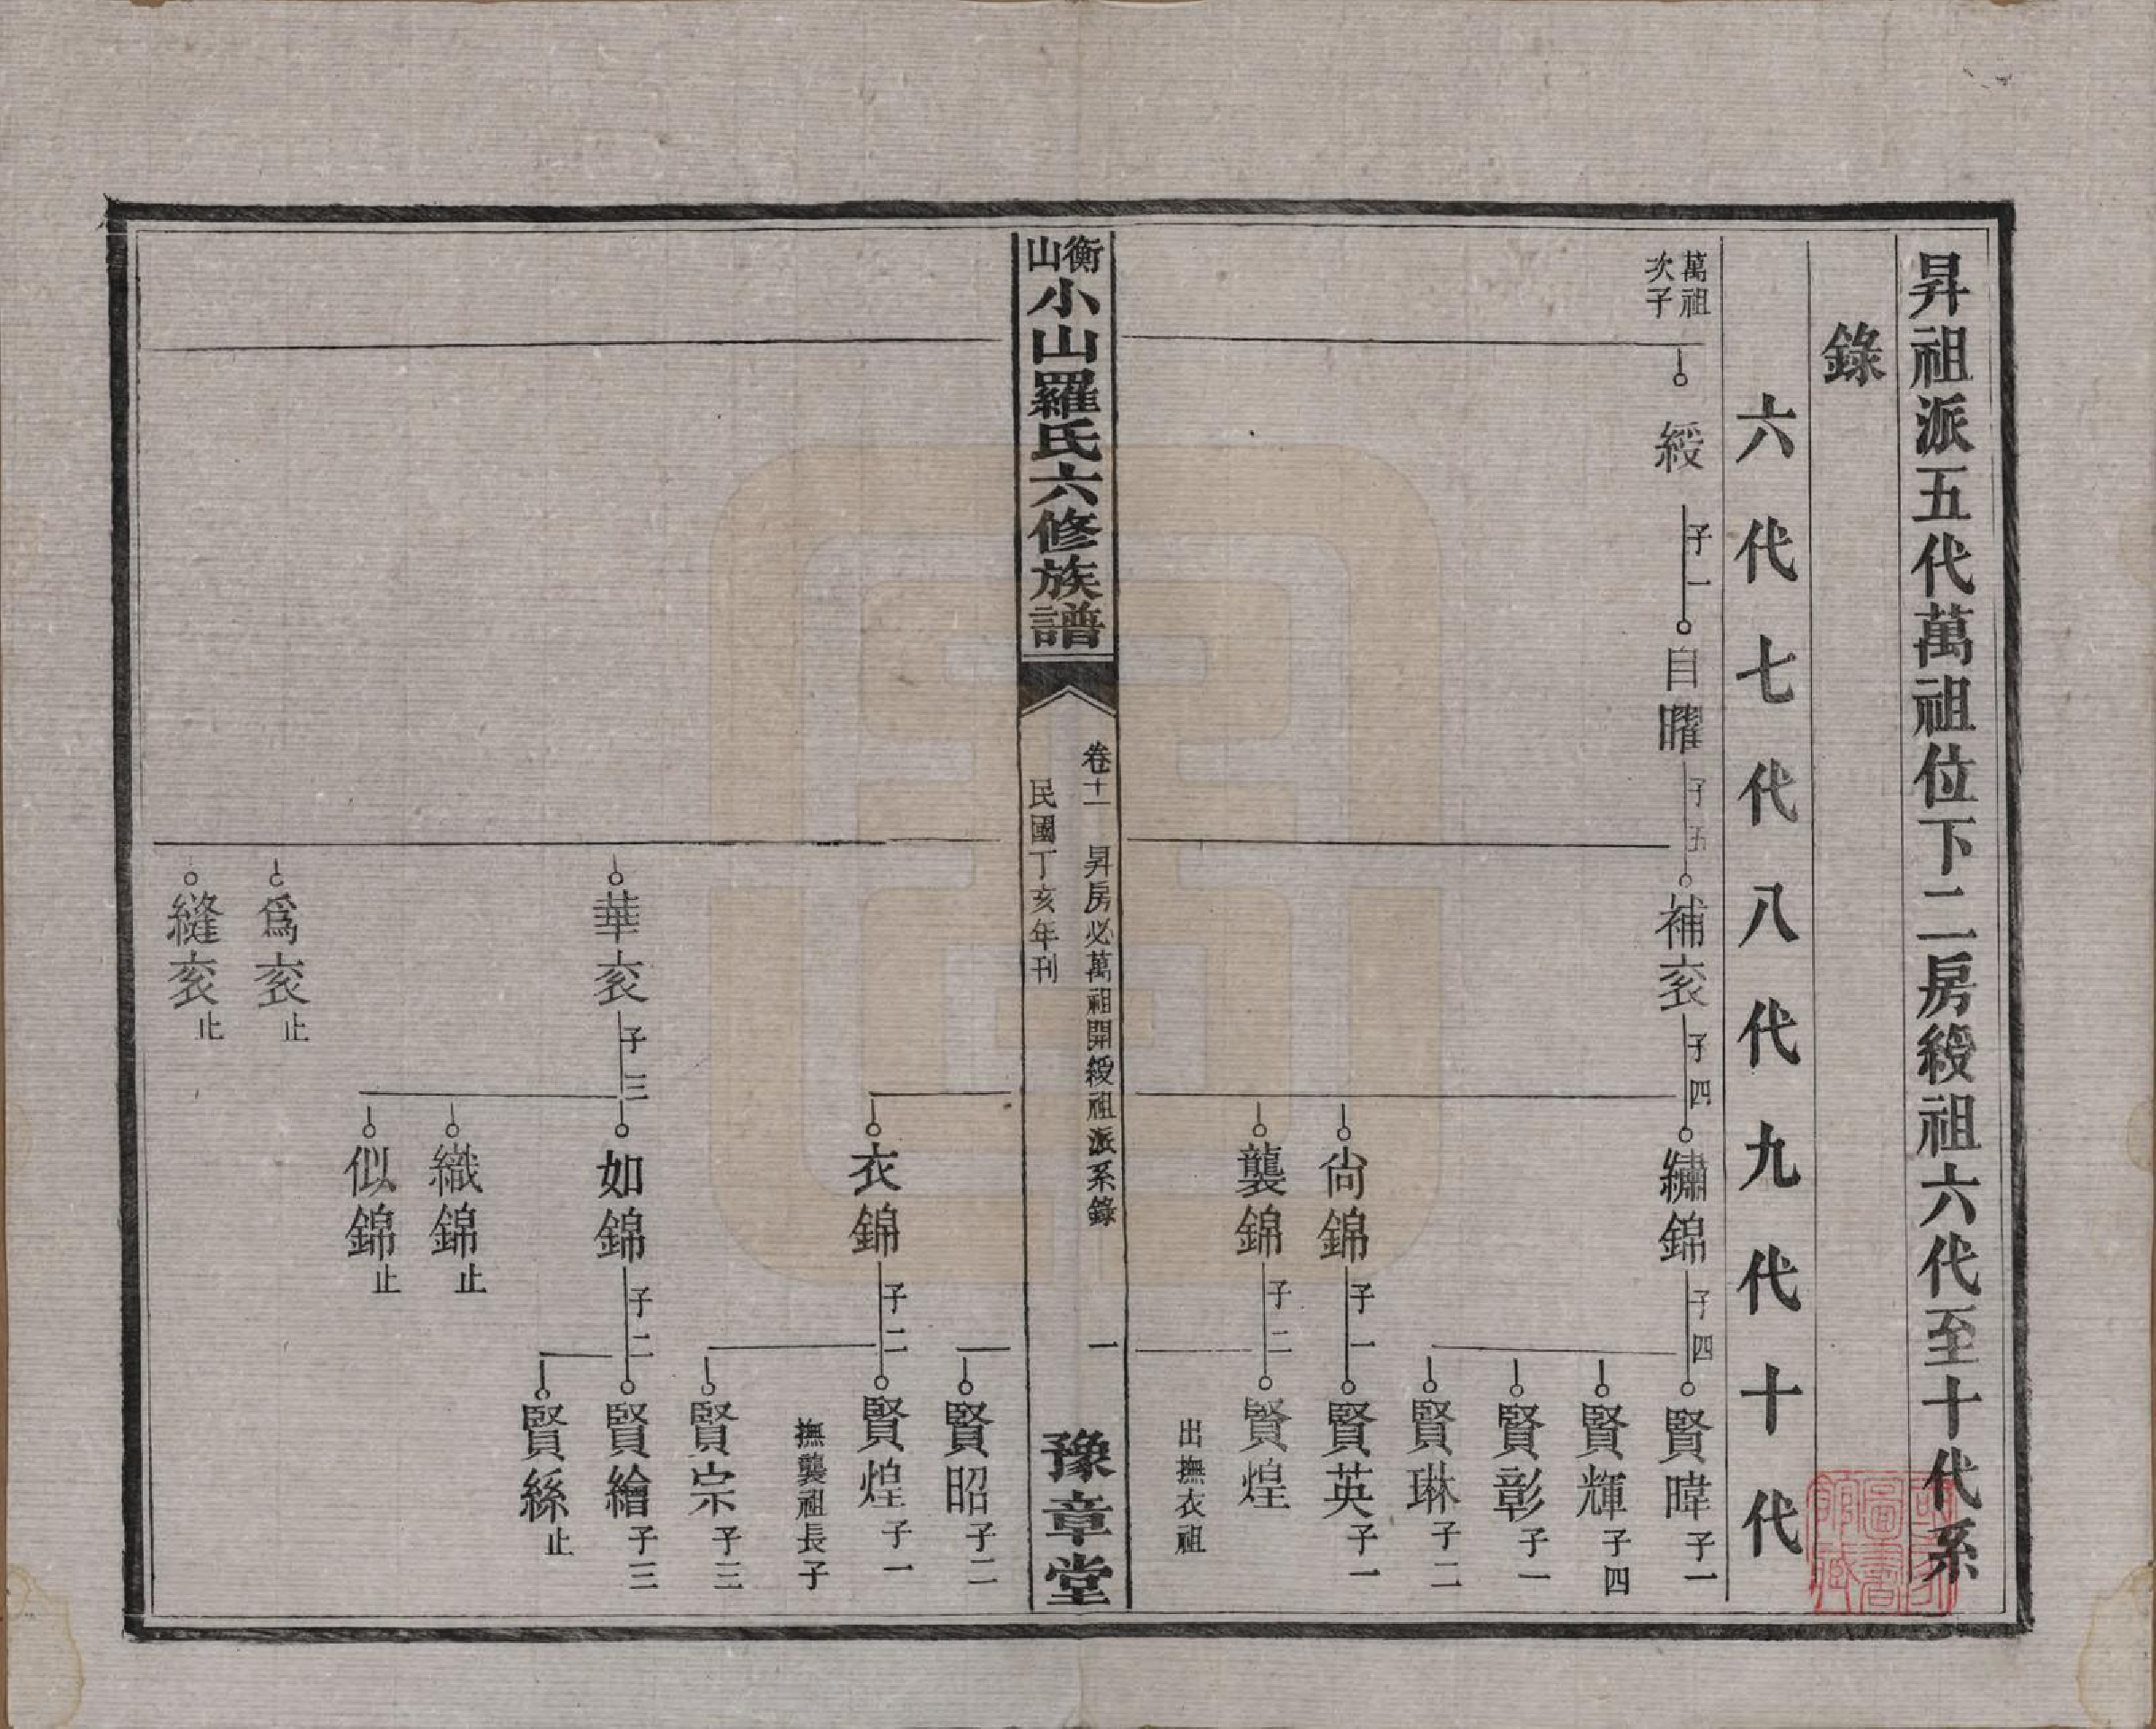 昇祖派五代萬祖位下二房綬祖六代至十代系
錄
六代七代八代九代十代
萬祖
次子
綬 子一
自曜 子五
補衮 子四
繡錦 子四
賢暐 子一
賢輝 子四
賢彰 子一
賢琳 子二
尙錦 子一
賢英 子一
襲錦 子二
賢煌
出撫衣祖
衡山小山羅氏六修族譜
卷十一 昇房必萬祖開綬祖派系錄 一
民國丁亥年刊
豫章堂
賢昭 子二
衣錦 子二
賢煌 子一
撫襲祖長子
賢宗 子三
華衮 子三
如錦 子二
賢繪 子三
賢絲 止
織錦 止
似錦 止
爲衮 止
縫衮 止